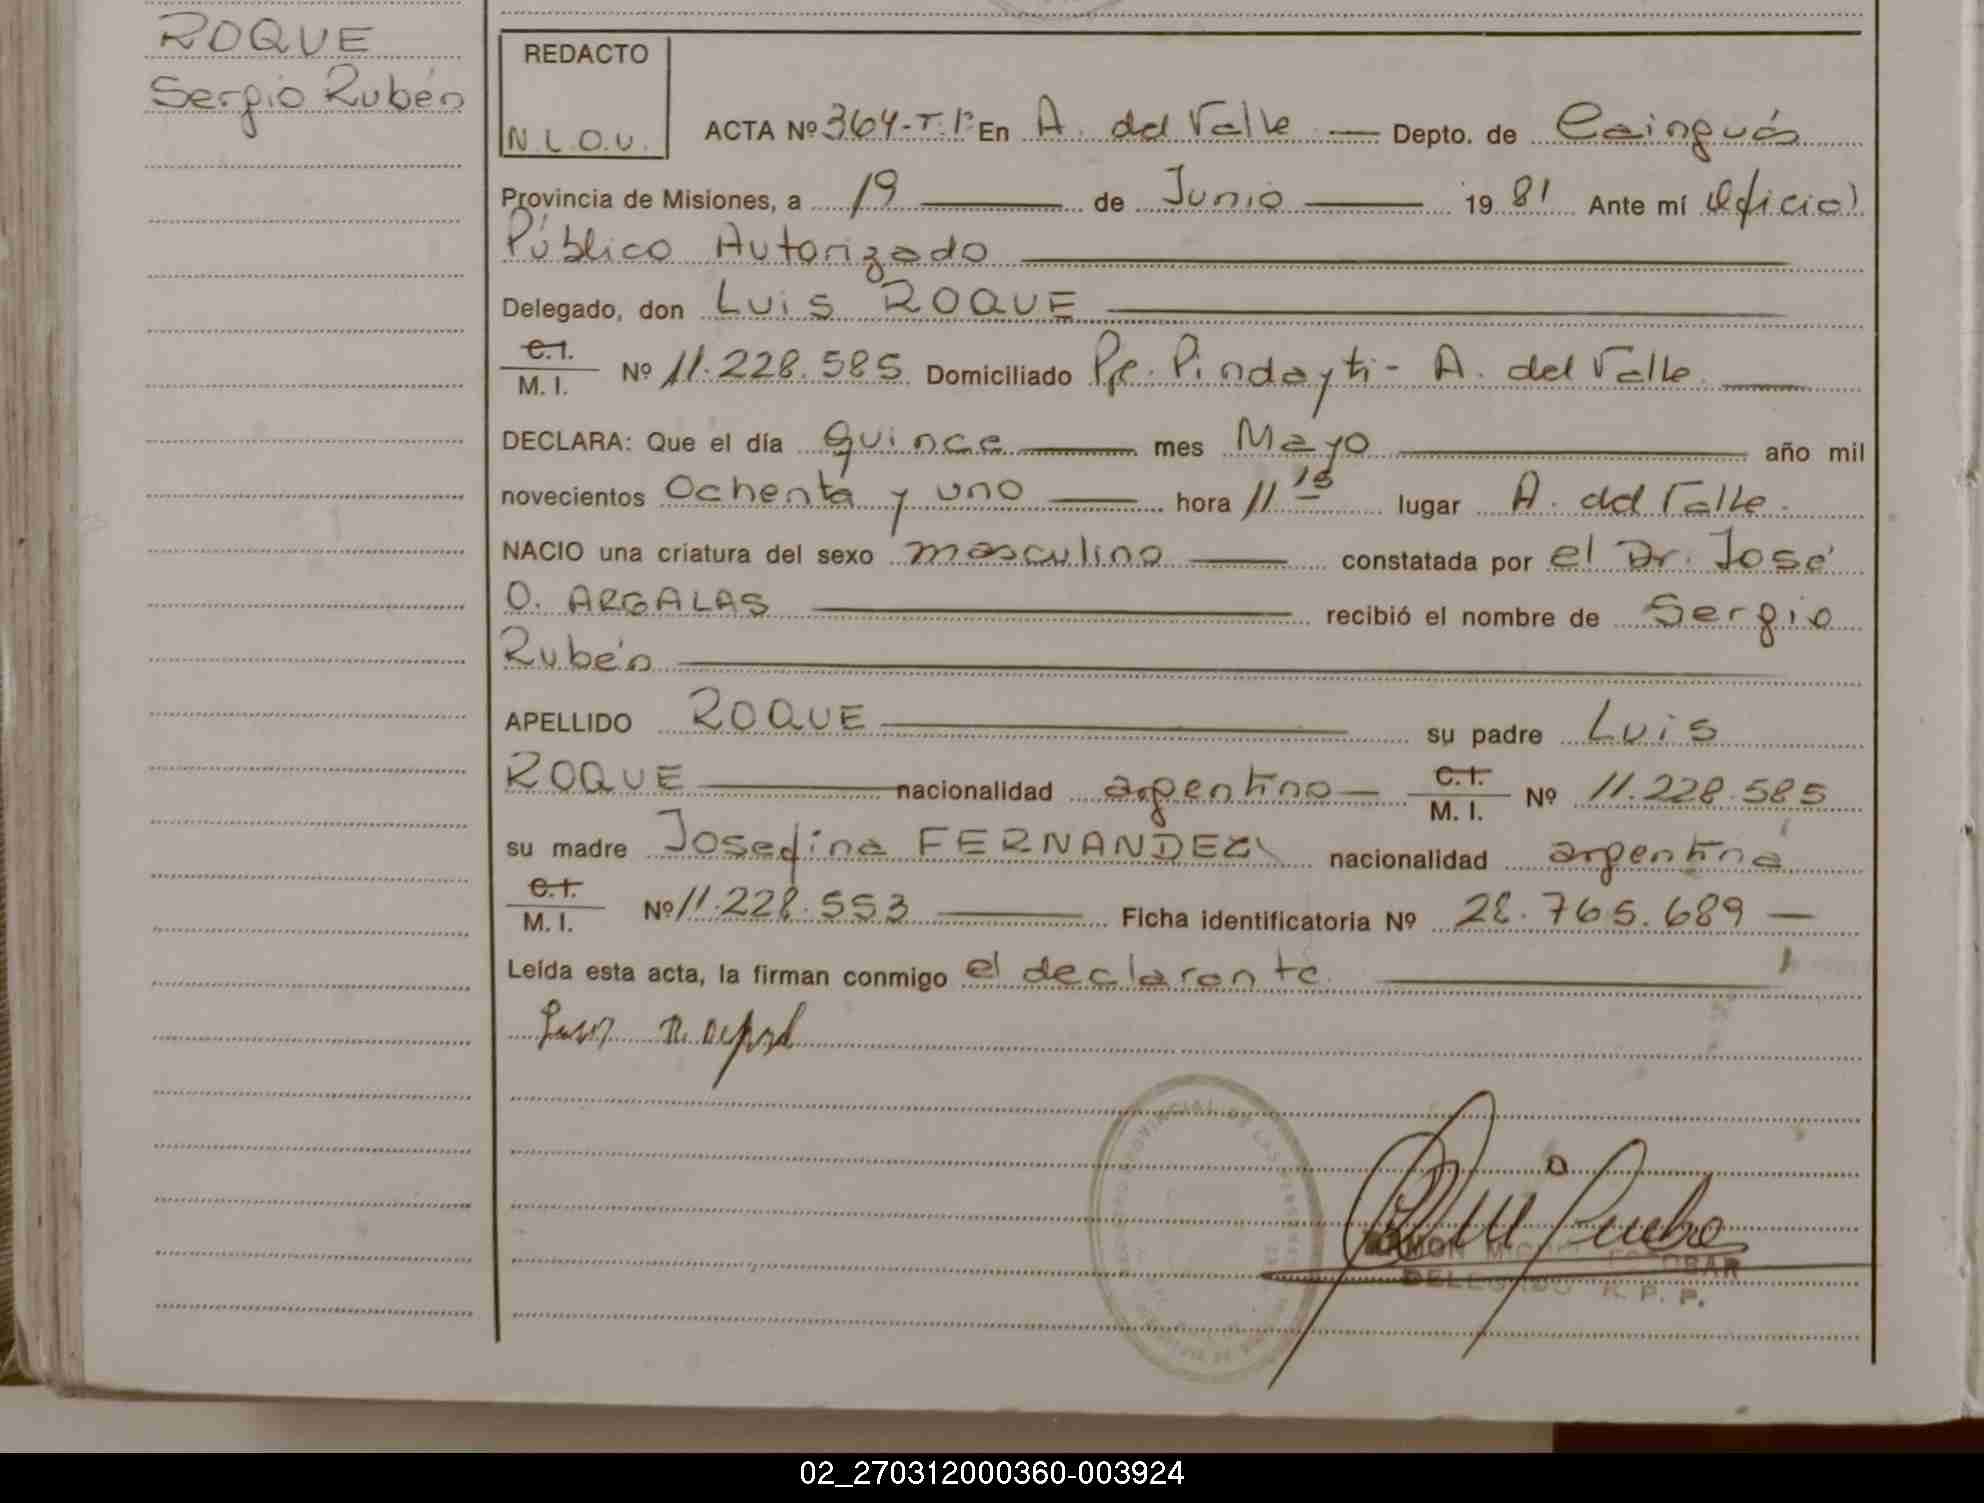 ROQUE
Sergio Rubén
REDACTO
N.L.O.U.
ACTA Nº 364-T.Iº En A. del Valle Depto. de Cainguás
Provincia de Misiones, a 19 de Junio 19 81 Ante mí Oficial
Público Autorizado
Delegado, don Luis ROQUE
C.I.
M. I. Nº 11.228.585 Domiciliado Pje. Pindayti - A. del Valle
DECLARA: Que el día quince mes Mayo año mil
novecientos Ochenta y uno hora 11 15 lugar A. del Valle.
NACIO una criatura del sexo masculino constatada por el Dr. José
O. ARGALAS recibió el nombre de Sergio
Rubén
APELLIDO ROQUE su padre Luis
ROQUE nacionalidad argentino C.I.
M. I. Nº 11.228.585
su madre Josefina FERNANDEZ nacionalidad argentina
C.I.
M. I. Nº 11.228.553 Ficha identificatoria Nº 28.765.689
Leída esta acta, la firman conmigo el declarante.
RAMON MIGUEL ESCOBAR
DELEGADO R. P. P.
02_270312000360-003924